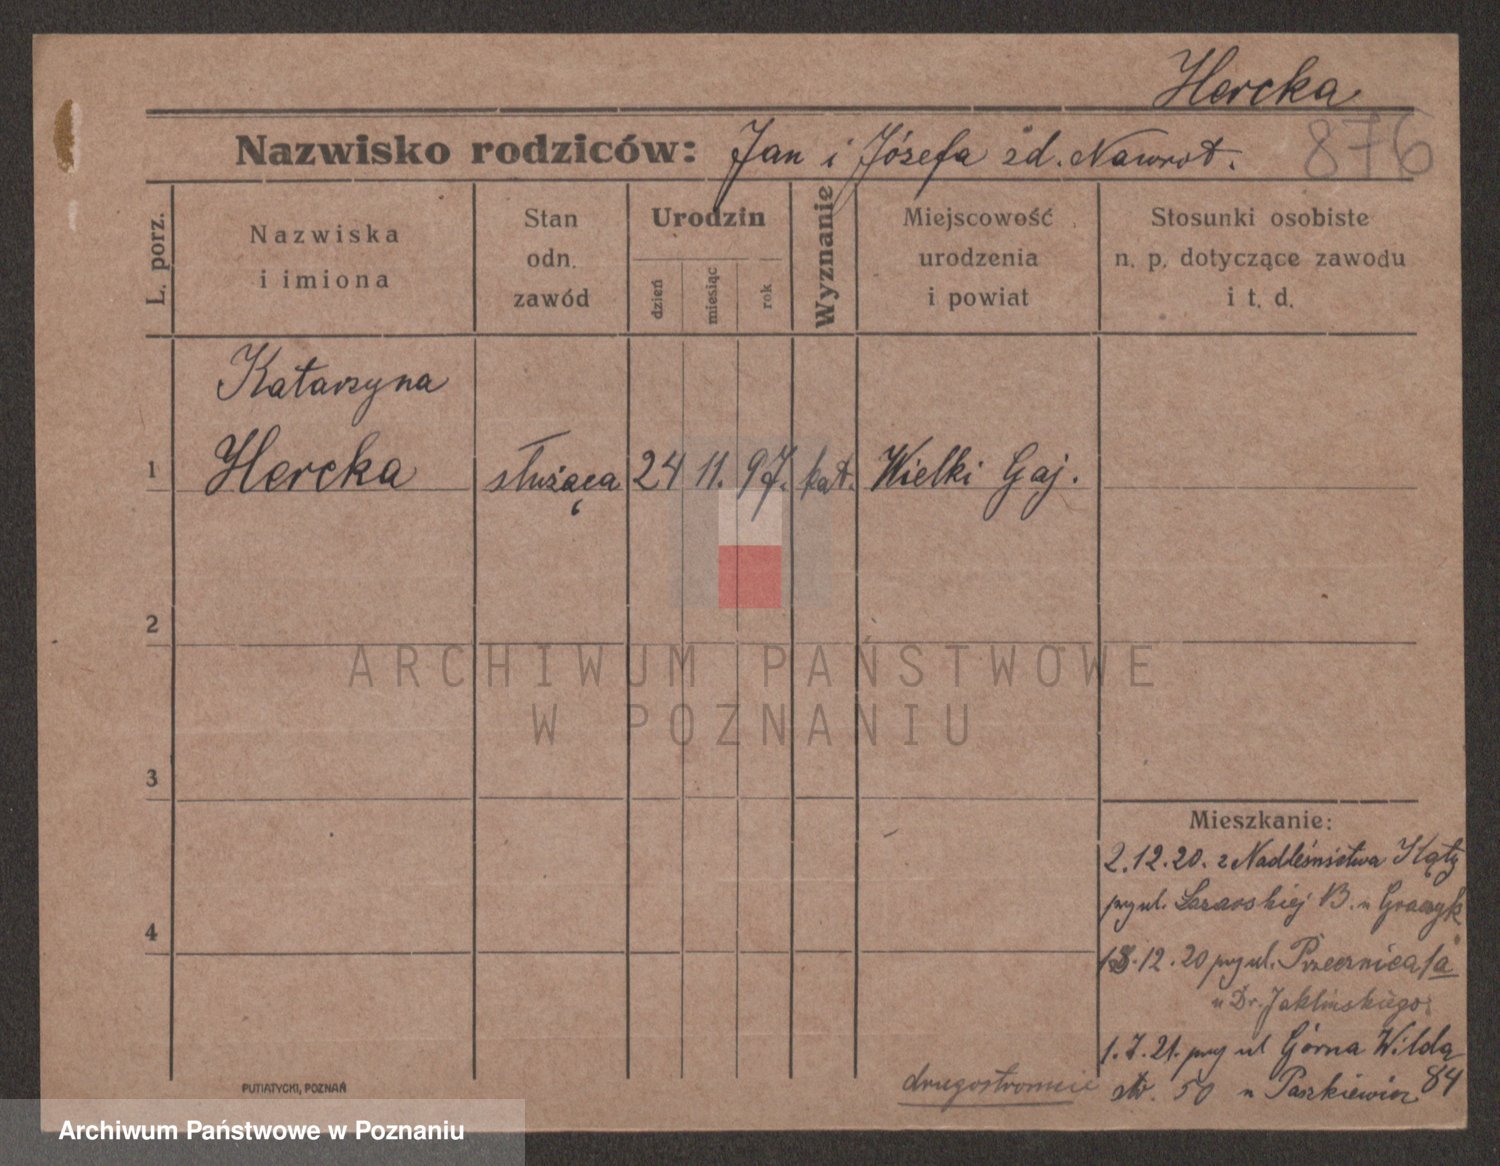 Hercka
Nazwisko rodziców: Jan i Józefa zd. Nawrot.
876
L. porz.
Nazwiska
i imiona
Stan
odn.
zawód
Urodzin
dzień
miesiąc
rok
Wyznanie
Miejscowość
urodzenia
i powiat
Stosunki osobiste
n. p. dotyczące zawodu
i t. d.
Katarzyna
1 Hercka służąca 24 11. 97. kat. Wielki Gaj.
2
ARCHIWUM PAŃSTWOWE
W POZNANIU
3
Mieszkanie:
2.12.20. z Nadleśnictwa Kąty
przy ul. B. u Graczyk
4
12.20 przy ul. Przecznica 1a
u Dr. Jaklińskiego.
1.7.21. przy ul Górna Wilda 84
str. 50 u Paszkiewicz
drugostronnie
PUTIATYCKI, POZNAŃ
Archiwum Państwowe w Poznaniu